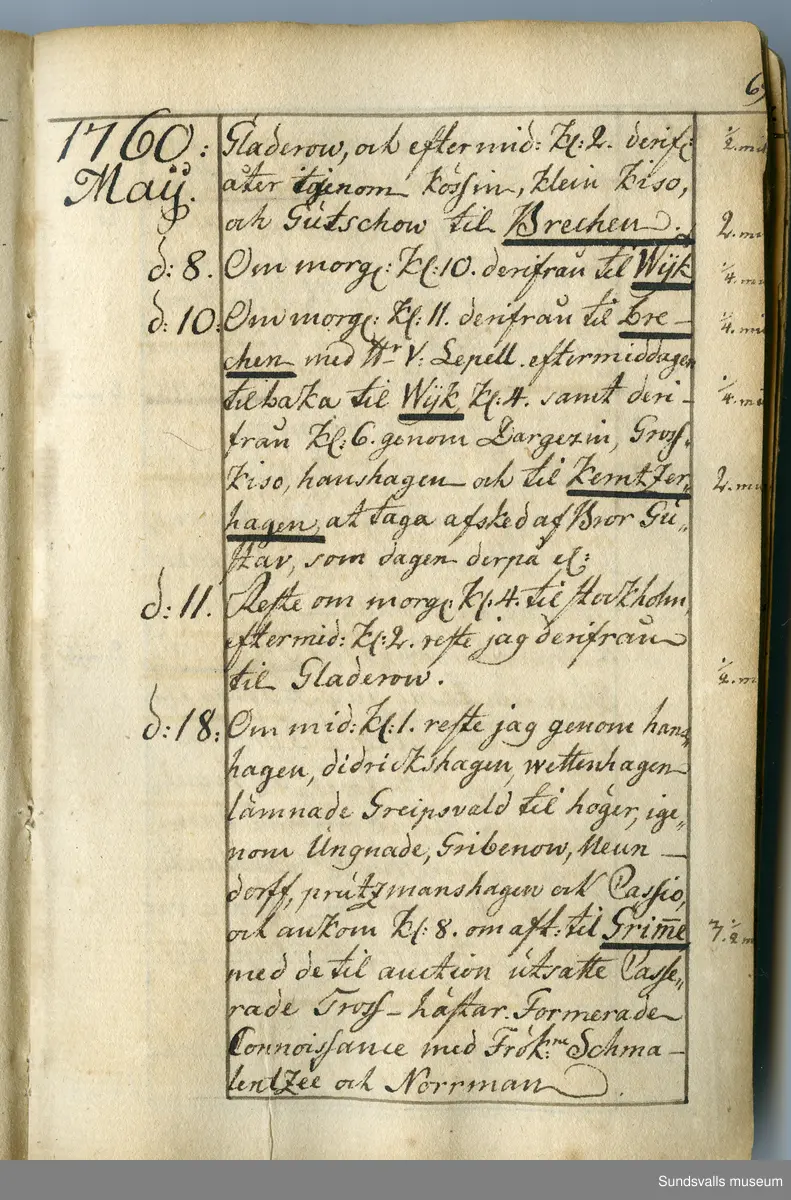 1760: Gladerow, och eftermid: Kl: 2. derifr: ½. mil
Maij. åter igenom Kössin, Klein Kiso,
och Gútschow til Brechen. 2. mi
d: 8. Om morg: Kl: 10. derifrån til Wijk ¼. mi
d: 10: Om morg: Kl: 11. derifrån til Bre- ¼. mil
chen med Hr V: Lepell. eftermiddagen
tilbaka til Wijk Kl: 4. samt deri- ¼. mi
från Kl: 6. genom Dargezin, Gross-
Kiso, hanshagen och til Kemtzer- 2. mi
hagen, at taga afsked af Bror Gú„
stav, som dagen derpå el:
d: 11. Reste om morg: Kl: 4. til stockholm,
eftermid: Kl: 2. reste jag derifrån
til Gladerow. ½. m
d: 18: Om mid: Kl: 1. reste jag genom hans
hagen, didrickshagen, wettenhagen
lämnade Greipsvald til höger, ige„
nom Úngnade, Gribenow, Neun-
dorff, prútzmanshagen och Passio,
och ankom Kl: 8. om aft: til Grim̅e 3. ½ m
med de til auction útsatte Casse„
rade Tross-hästar. Formerade
Connoissance med Frök:ne Schma-
lentzée och Norrman
Sundsvalls museum